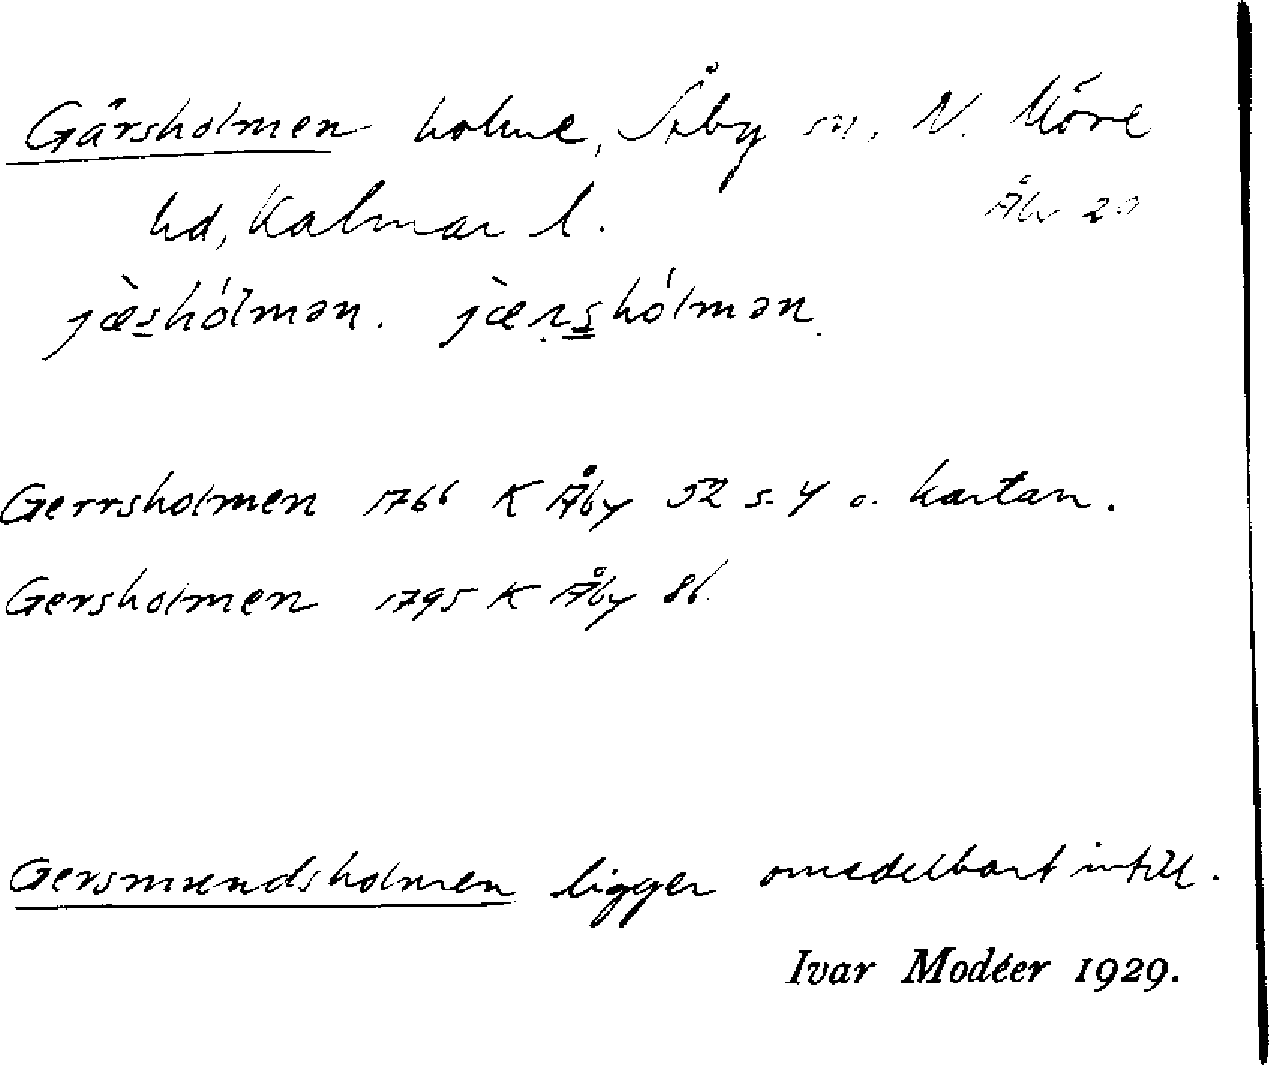 Gärsholmen holme, Åby sn, N. Möre
hd, Kalmar l.
jæ̀s̲hólmən. jæ̀rs̲hólmən.
Gerrsholmen 1766 K Åby 52 s. 4 o. kartan.
Gersholmen 1795 K Åby 86.
Gersmundsholmen ligger omedelbart intill.
Ivar Modéer 1929.